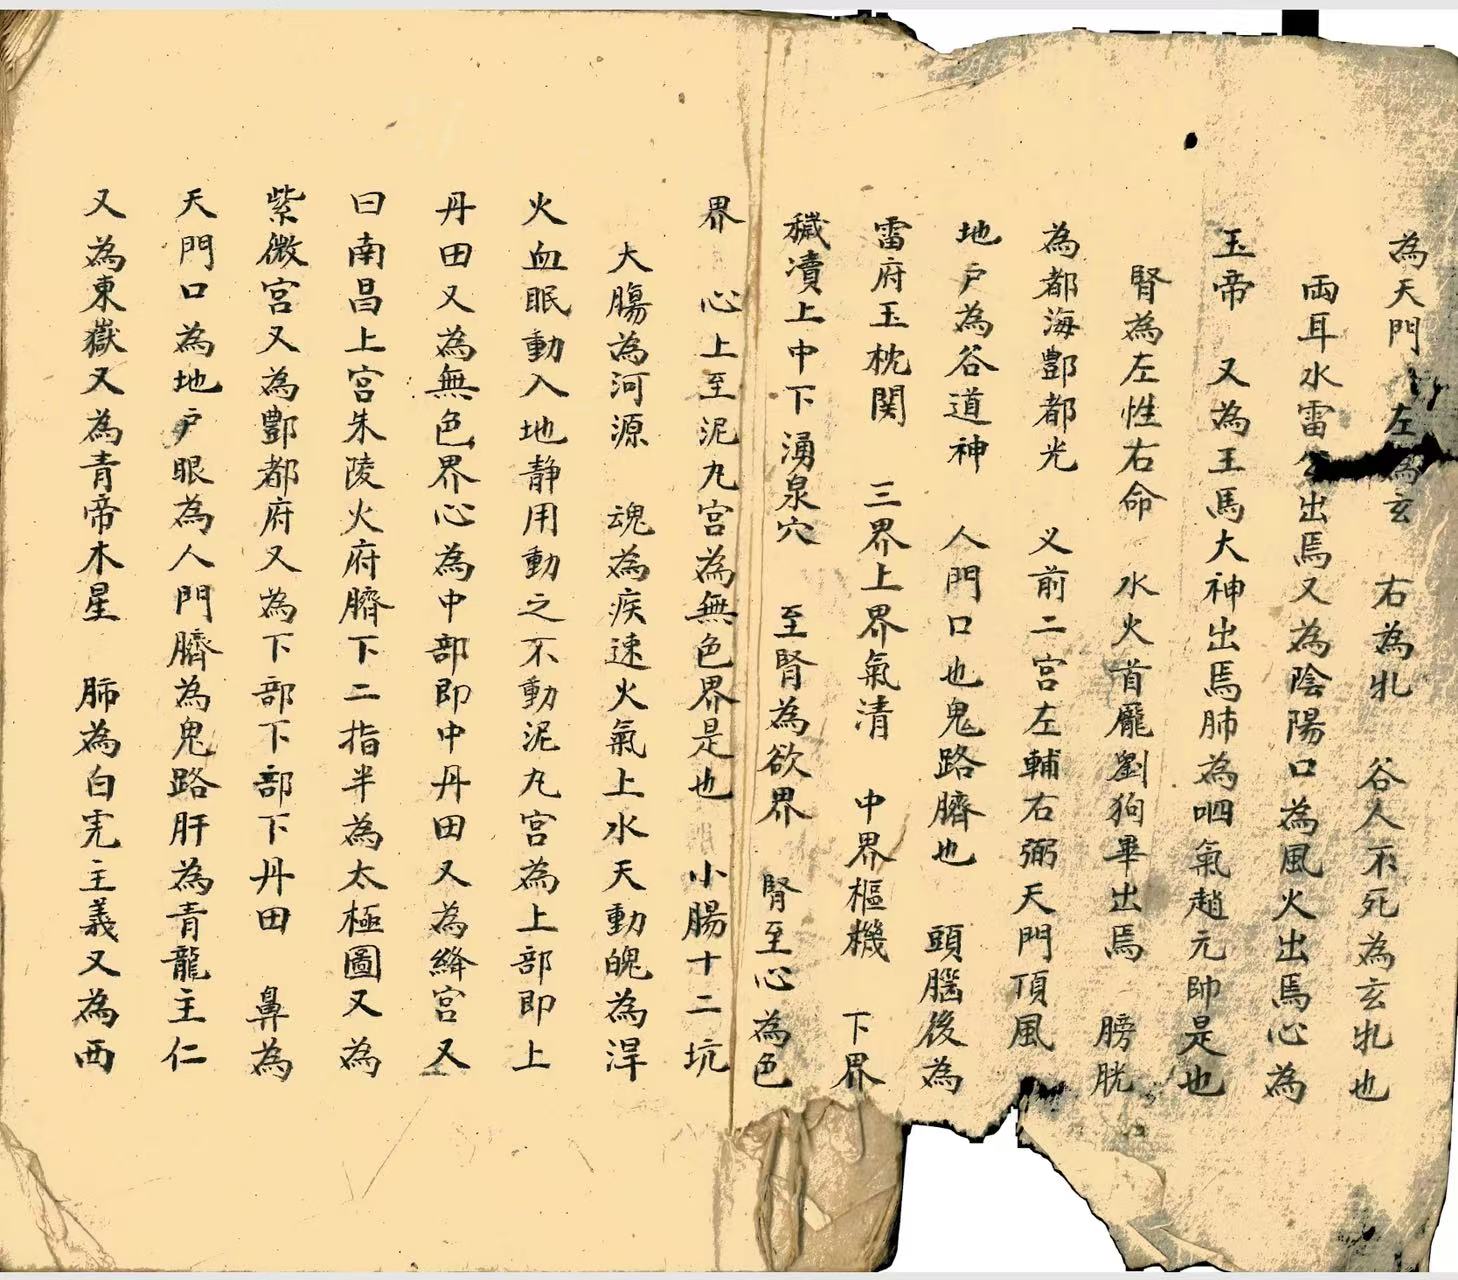 為天門 左為玄 右為牝 谷人不死為玄牝也
両耳水雷公出焉又為陰陽口為風火出焉心為
玉帝 又為王馬大神出焉肺為呬氣趙元帥是也
腎為左性右命 水火首龐劉狗畢出焉 膀胱
為都海酆都光 又前二宮左輔右弼天門頂風
地户為谷道神 人門口也鬼路臍也 頭腦後為
雷府玉枕関 三界上界氣清 中界樞機 下界
穢瀆上中下湧泉穴 至腎為欲界 腎至心為色
界 心上至泥九宮為無色界是也 小腸十二坑
大膓為河源 魂為疾速火氣上水天動魄為淂
火血眠動入地静用動之不動泥九宮為上部即上
丹田又為無色界心為中部即中丹田又為絳宮又
曰南昌上宮朱陵火府臍下二指半為太極圖又為
紫微宮又為酆都府又為下部下部下丹田 鼻為
天門口為地户眼為人門臍為鬼路肝為青龍主仁
又為東嶽又為青帝木星 肺為白虎主義又為西